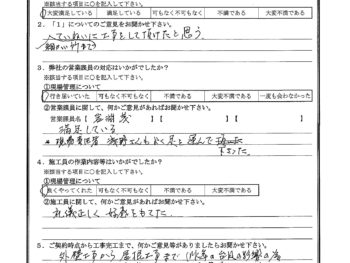 ※該当する項目に○を記入して下さい。
大変満足している 満足している 可も不可もなく 不満である 大変不満である
2．「1」についてのご意見をお聞かせ下さい。
ていねいに工事をして頂けたと思う
細かい所まで
3．弊社の営業課員の対応はいかがでしたか？
※該当する項目に○を記入して下さい。
①現場管理について
行き届いていた 可も不可もなく 不満である 大変不満である 一度も会わなかった
②営業課員に関して、何かご意見があればお聞かせ下さい。
営業課員名【 】【 】【 】
満足している
も良く足を運んで
下さった。
4．施工員の作業内容等はいかがでしたか？
※該当する項目に○を記入して下さい。
①現場管理について
良くやってくれた 可も不可もなく 不満である 大変不満である
②施工員に関して、何かご意見があればお聞かせ下さい。
礼儀正しく 好感をもてた。
5．ご契約時点から工事完工まで、何かご意見等がありましたらお聞かせ下さい。
外壁工事から屋根工事まで